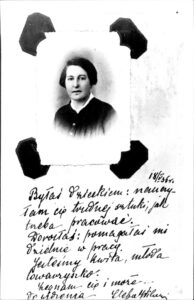 18/I 36r.
Byłaś dzieckiem: nauczy-
łam cię trudnej sztuki, jak
trzeba pracować.
Dorosłaś: pomagałaś mi
dzielnie w pracy.
Jesteśmy kwita, młoda
towarzyszko.
Żegnam cię i może...
do widzenia